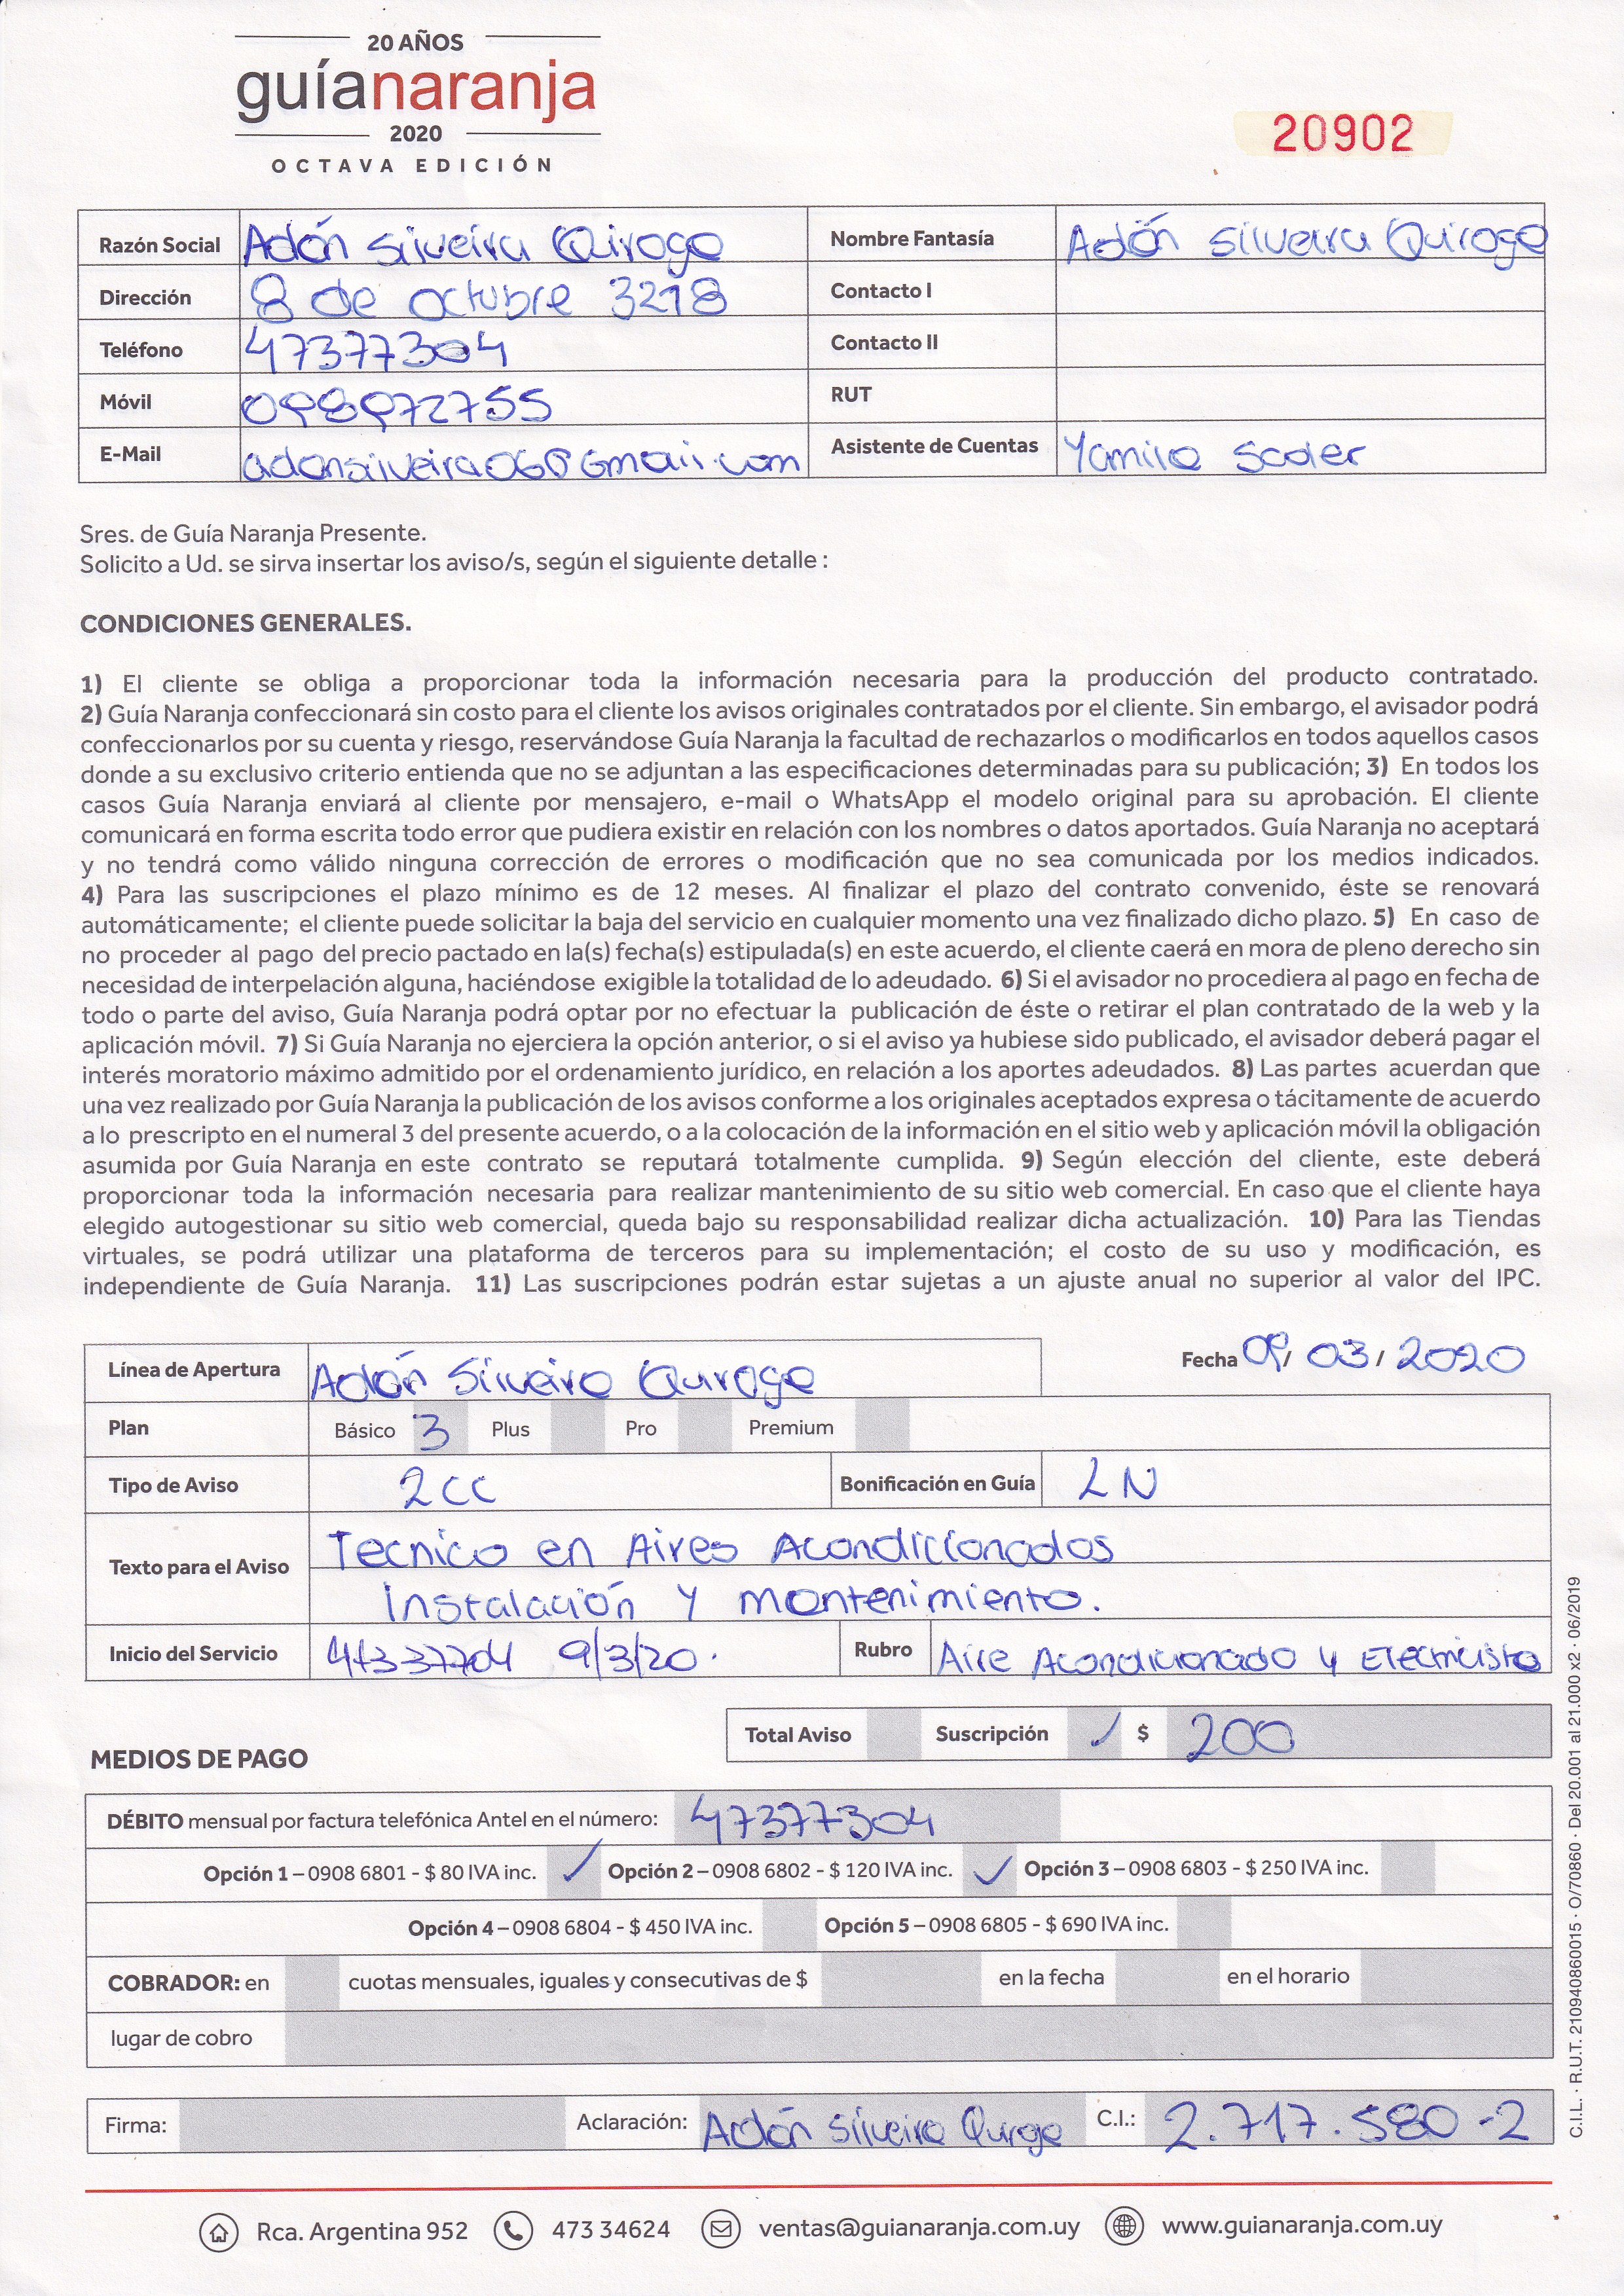 20 AÑOS
guíanaranja
2020
OCTAVA EDICIÓN
20902
Razón Social Adón Silveira Quiroga Nombre Fantasía Adón Silveira Quiroga
Dirección 8 de octubre 3218 Contacto I
Teléfono 47377304 Contacto II
Móvil 098972755 RUT
E-Mail adonsilveira06@Gmail.com Asistente de Cuentas Yamila
Sres. de Guía Naranja Presente.
Solicito a Ud. se sirva insertar los aviso/s, según el siguiente detalle :
CONDICIONES GENERALES.
1) El cliente se obliga a proporcionar toda la información necesaria para la producción del producto contratado.
2) Guía Naranja confeccionará sin costo para el cliente los avisos originales contratados por el cliente. Sin embargo, el avisador podrá
confeccionarlos por su cuenta y riesgo, reservándose Guía Naranja la facultad de rechazarlos o modificarlos en todos aquellos casos
donde a su exclusivo criterio entienda que no se adjuntan a las especificaciones determinadas para su publicación; 3) En todos los
casos Guía Naranja enviará al cliente por mensajero, e-mail o WhatsApp el modelo original para su aprobación. El cliente
comunicará en forma escrita todo error que pudiera existir en relación con los nombres o datos aportados. Guía Naranja no aceptará
y no tendrá como válido ninguna corrección de errores o modificación que no sea comunicada por los medios indicados.
4) Para las suscripciones el plazo mínimo es de 12 meses. Al finalizar el plazo del contrato convenido, éste se renovará
automáticamente; el cliente puede solicitar la baja del servicio en cualquier momento una vez finalizado dicho plazo. 5) En caso de
no proceder al pago del precio pactado en la(s) fecha(s) estipulada(s) en este acuerdo, el cliente caerá en mora de pleno derecho sin
necesidad de interpelación alguna, haciéndose exigible la totalidad de lo adeudado. 6) Si el avisador no procediera al pago en fecha de
todo o parte del aviso, Guía Naranja podrá optar por no efectuar la publicación de éste o retirar el plan contratado de la web y la
aplicación móvil. 7) Si Guía Naranja no ejerciera la opción anterior, o si el aviso ya hubiese sido publicado, el avisador deberá pagar el
interés moratorio máximo admitido por el ordenamiento jurídico, en relación a los aportes adeudados. 8) Las partes acuerdan que
una vez realizado por Guía Naranja la publicación de los avisos conforme a los originales aceptados expresa o tácitamente de acuerdo
a lo prescripto en el numeral 3 del presente acuerdo, o a la colocación de la información en el sitio web y aplicación móvil la obligación
asumida por Guía Naranja en este contrato se reputará totalmente cumplida. 9) Según elección del cliente, este deberá
proporcionar toda la información necesaria para realizar mantenimiento de su sitio web comercial. En caso que el cliente haya
elegido autogestionar su sitio web comercial, queda bajo su responsabilidad realizar dicha actualización. 10) Para las Tiendas
virtuales, se podrá utilizar una plataforma de terceros para su implementación; el costo de su uso y modificación, es
independiente de Guía Naranja. 11) Las suscripciones podrán estar sujetas a un ajuste anual no superior al valor del IPC.
Fecha 09/ 03 / 2020
Línea de Apertura Adón Silveira Quiroga
Plan Básico 3 Plus Pro Premium
Tipo de Aviso 2CC Bonificación en Guía LN
Texto para el Aviso Tecnico en Aires Acondicionados
Instalación y mantenimiento.
Inicio del Servicio 9/3/20. Rubro Aire Acondicionado y Electricista
Total Aviso Suscripción ✓ $ 200
MEDIOS DE PAGO
DÉBITO mensual por factura telefónica Antel en el número: 47377304
Opción 1 – 0908 6801 - $ 80 IVA inc. ✓ Opción 2 – 0908 6802 - $ 120 IVA inc. ✓ Opción 3 – 0908 6803 - $ 250 IVA inc.
Opción 4 – 0908 6804 - $ 450 IVA inc. Opción 5 – 0908 6805 - $ 690 IVA inc.
COBRADOR: en cuotas mensuales, iguales y consecutivas de $ en la fecha en el horario
lugar de cobro
Firma: Aclaración: Adón Silveira Quiroga C.I.: 2.717.580-2
Rca. Argentina 952 473 34624 ventas@guianaranja.com.uy www.guianaranja.com.uy
C.I.L. · R.U.T. 210940860015 · O/70860 · Del 20.001 al 21.000 x2 · 06/2019